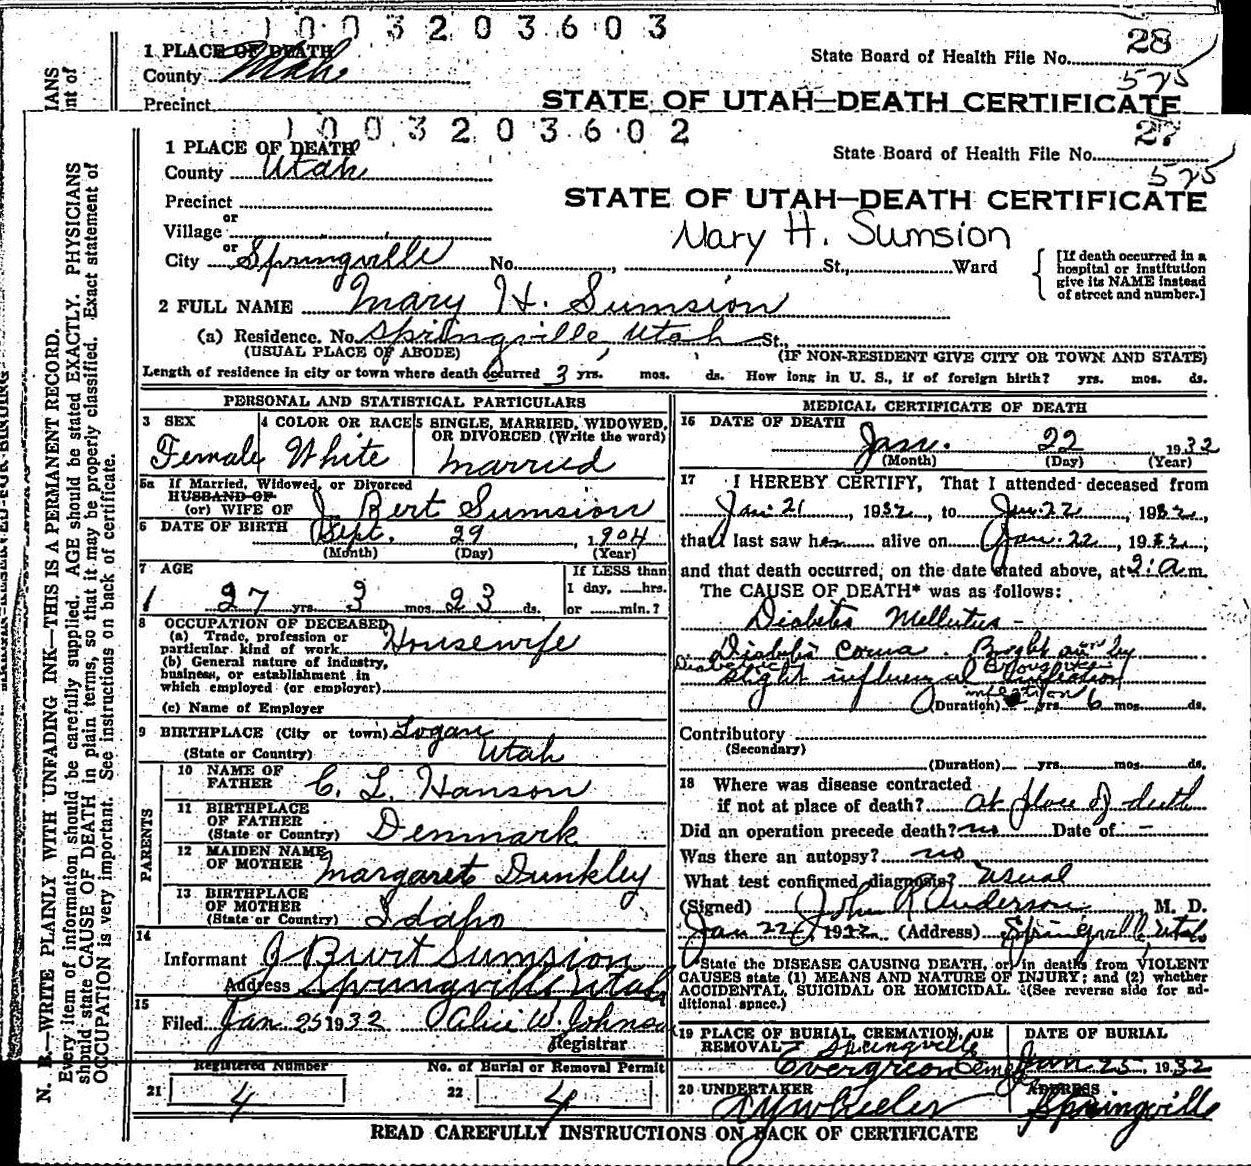 1 0 0 3 2 0 3 6 0 3
1 PLACE OF DEATH
County Utah
Precinct
State Board of Health File No. 28
575
STATE OF UTAH—DEATH CERTIFICATE
1 0 0 3 2 0 3 6 0 2
1 PLACE OF DEATH
County Utah
State Board of Health File No. 27
575
STATE OF UTAH—DEATH CERTIFICATE
Mary H. Sumsion
Precinct
or
Village
or
City Springville No. , St., Ward
[If death occurred in a
hospital or institution
give its NAME instead
of street and number.]
2 FULL NAME Mary H. Sumsion
(a) Residence. No. Springville Utah St.,
(USUAL PLACE OF ABODE) (IF NON-RESIDENT GIVE CITY OR TOWN AND STATE)
Length of residence in city or town where death occurred 3 yrs. mos. ds. How long in U. S., if of foreign birth? yrs. mos. ds.
PERSONAL AND STATISTICAL PARTICULARS
3 SEX
Female
4 COLOR OR RACE
White
5 SINGLE, MARRIED, WIDOWED,
OR DIVORCED (Write the word)
married
5a If Married, Widowed, or Divorced
HUSBAND OF
(or) WIFE OF J. Bert Sumsion
6 DATE OF BIRTH Sept. 29, 1904
(Month) (Day) (Year)
7 AGE
27 yrs. 3 mos. 23 ds.
If LESS than
1 day, hrs.
or min.?
8 OCCUPATION OF DECEASED
(a) Trade, profession or
particular kind of work Housewife
(b) General nature of industry,
business, or establishment in
which employed (or employer)
(c) Name of Employer
9 BIRTHPLACE (City or town) Logan
(State or Country) Utah
PARENTS
10 NAME OF
FATHER C. L. Hanson
11 BIRTHPLACE
OF FATHER
(State or Country) Denmark
12 MAIDEN NAME
OF MOTHER Margaret Dunkley
13 BIRTHPLACE
OF MOTHER
(State or Country) Idaho
14
Informant J Burt Sumsion
Address Springville Utah
15
Filed Jan 25 1932 Alice W. Johnson
Registrar
Registered Number
21 4
No. of Burial or Removal Permit
22 4
MEDICAL CERTIFICATE OF DEATH
16 DATE OF DEATH
Jan. 22 1932
(Month) (Day) (Year)
17 I HEREBY CERTIFY, That I attended deceased from
Jan 21, 1932, to Jan. 22, 1932,
that I last saw her alive on Jan. 22, 1932,
and that death occurred, on the date stated above, at 2:a.m.
The CAUSE OF DEATH* was as follows:
Diabetis Mellutus -
Diabetic Coma. Brought on by
slight influenzal infection
(Duration) yrs. 6 mos. ds.
Contributory
(Secondary)
(Duration) yrs. mos. ds.
18 Where was disease contracted
if not at place of death? at place of death
Did an operation precede death? no Date of -
Was there an autopsy? no
What test confirmed diagnosis? Usual
(Signed) John R Anderson M. D.
Jan 22, 1932 (Address) Springville Utah
*State the DISEASE CAUSING DEATH, or in deaths from VIOLENT
CAUSES state (1) MEANS AND NATURE OF INJURY; and (2) whether
ACCIDENTAL, SUICIDAL OR HOMICIDAL. (See reverse side for ad-
ditional space.)
19 PLACE OF BURIAL, CREMATION, OR
REMOVAL Springville
Evergreen Cem
DATE OF BURIAL
Jan 25, 1932
20 UNDERTAKER
A Y Wheeler
ADDRESS
Springville
READ CAREFULLY INSTRUCTIONS ON BACK OF CERTIFICATE
N. B.—WRITE PLAINLY WITH UNFADING INK—THIS IS A PERMANENT RECORD.
Every item of information should be carefully supplied. AGE should be stated EXACTLY. PHYSICIANS
should state CAUSE OF DEATH in plain terms, so that it may be properly classified. Exact statement of
OCCUPATION is very important. See instructions on back of certificate.